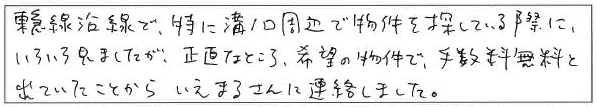 東急線沿線で、特に溝ノ口周辺で物件を探している際に、
いろいろ見ましたが、正直なところ、希望の物件で、手数料無料と
出ていたことから いえまるさんに連絡しました。